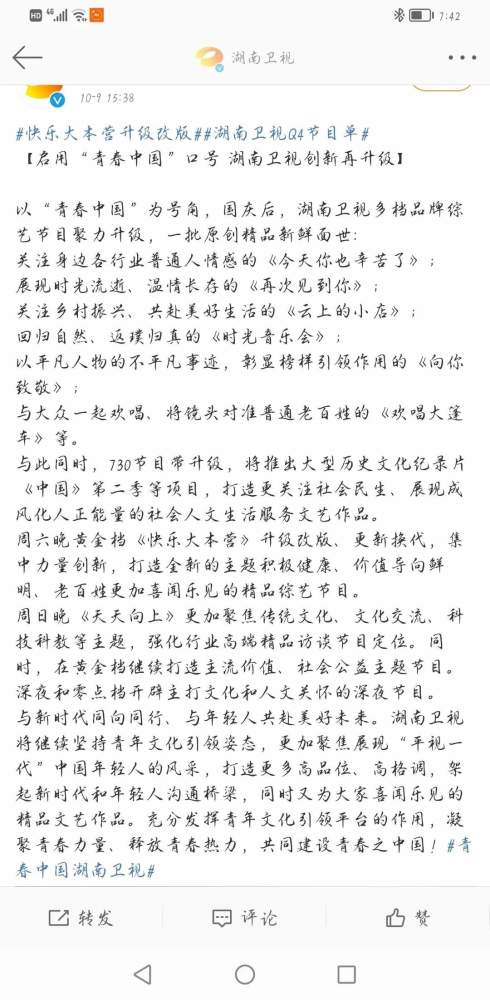 HD 4G 7:42
湖南卫视
10-9 15:38
#快乐大本营升级改版##湖南卫视Q4节目单#
【启用“青春中国”口号 湖南卫视创新再升级】
以“青春中国”为号角，国庆后，湖南卫视多档品牌综
艺节目聚力升级，一批原创精品新鲜面世：
关注身边各行业普通人情感的《今天你也辛苦了》；
展现时光流逝、温情长存的《再次见到你》；
关注乡村振兴、共赴美好生活的《云上的小店》；
回归自然、返璞归真的《时光音乐会》；
以平凡人物的不平凡事迹，彰显榜样引领作用的《向你
致敬》；
与大众一起欢唱、将镜头对准普通老百姓的《欢唱大篷
车》等。
与此同时，730节目带升级，将推出大型历史文化纪录片
《中国》第二季等项目，打造更关注社会民生、展现成
风化人正能量的社会人文生活服务文艺作品。
周六晚黄金档《快乐大本营》升级改版、更新换代，集
中力量创新，打造全新的主题积极健康、价值导向鲜
明、老百姓更加喜闻乐见的精品综艺节目。
周日晚《天天向上》更加聚焦传统文化、文化交流、科
技科教等主题，强化行业高端精品访谈节目定位。同
时，在黄金档继续打造主流价值、社会公益主题节目。
深夜和零点档开辟主打文化和人文关怀的深夜节目。
与新时代同向同行、与年轻人共赴美好未来。湖南卫视
将继续坚持青年文化引领姿态，更加聚焦展现“平视一
代”中国年轻人的风采，打造更多高品位、高格调，架
起新时代和年轻人沟通桥梁，同时又为大家喜闻乐见的
精品文艺作品。充分发挥青年文化引领平台的作用，凝
聚青春力量、释放青春热力，共同建设青春之中国！#青
春中国湖南卫视#
转发 评论 赞